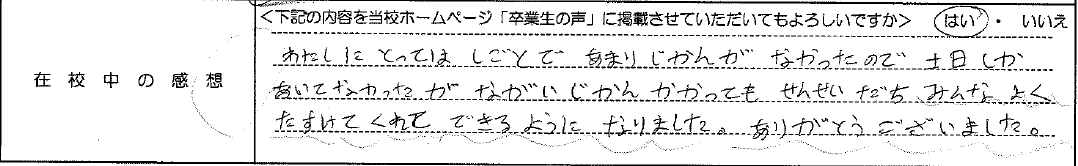 <下記の内容を当校ホームページ「卒業生の声」に掲載させていただいてもよろしいですか> はい ・ いいえ
在校中の感想
わたしに とっては しごとで あまり じかんが なかったので 土日しか
あいてなかったが ながい じかん かかっても せんせい だち みんな よく
たすけて くれて できるように なりました。 ありがとう ございました。